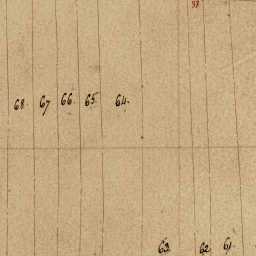 68. 67 66. 65. 64.
63. 62. 61.